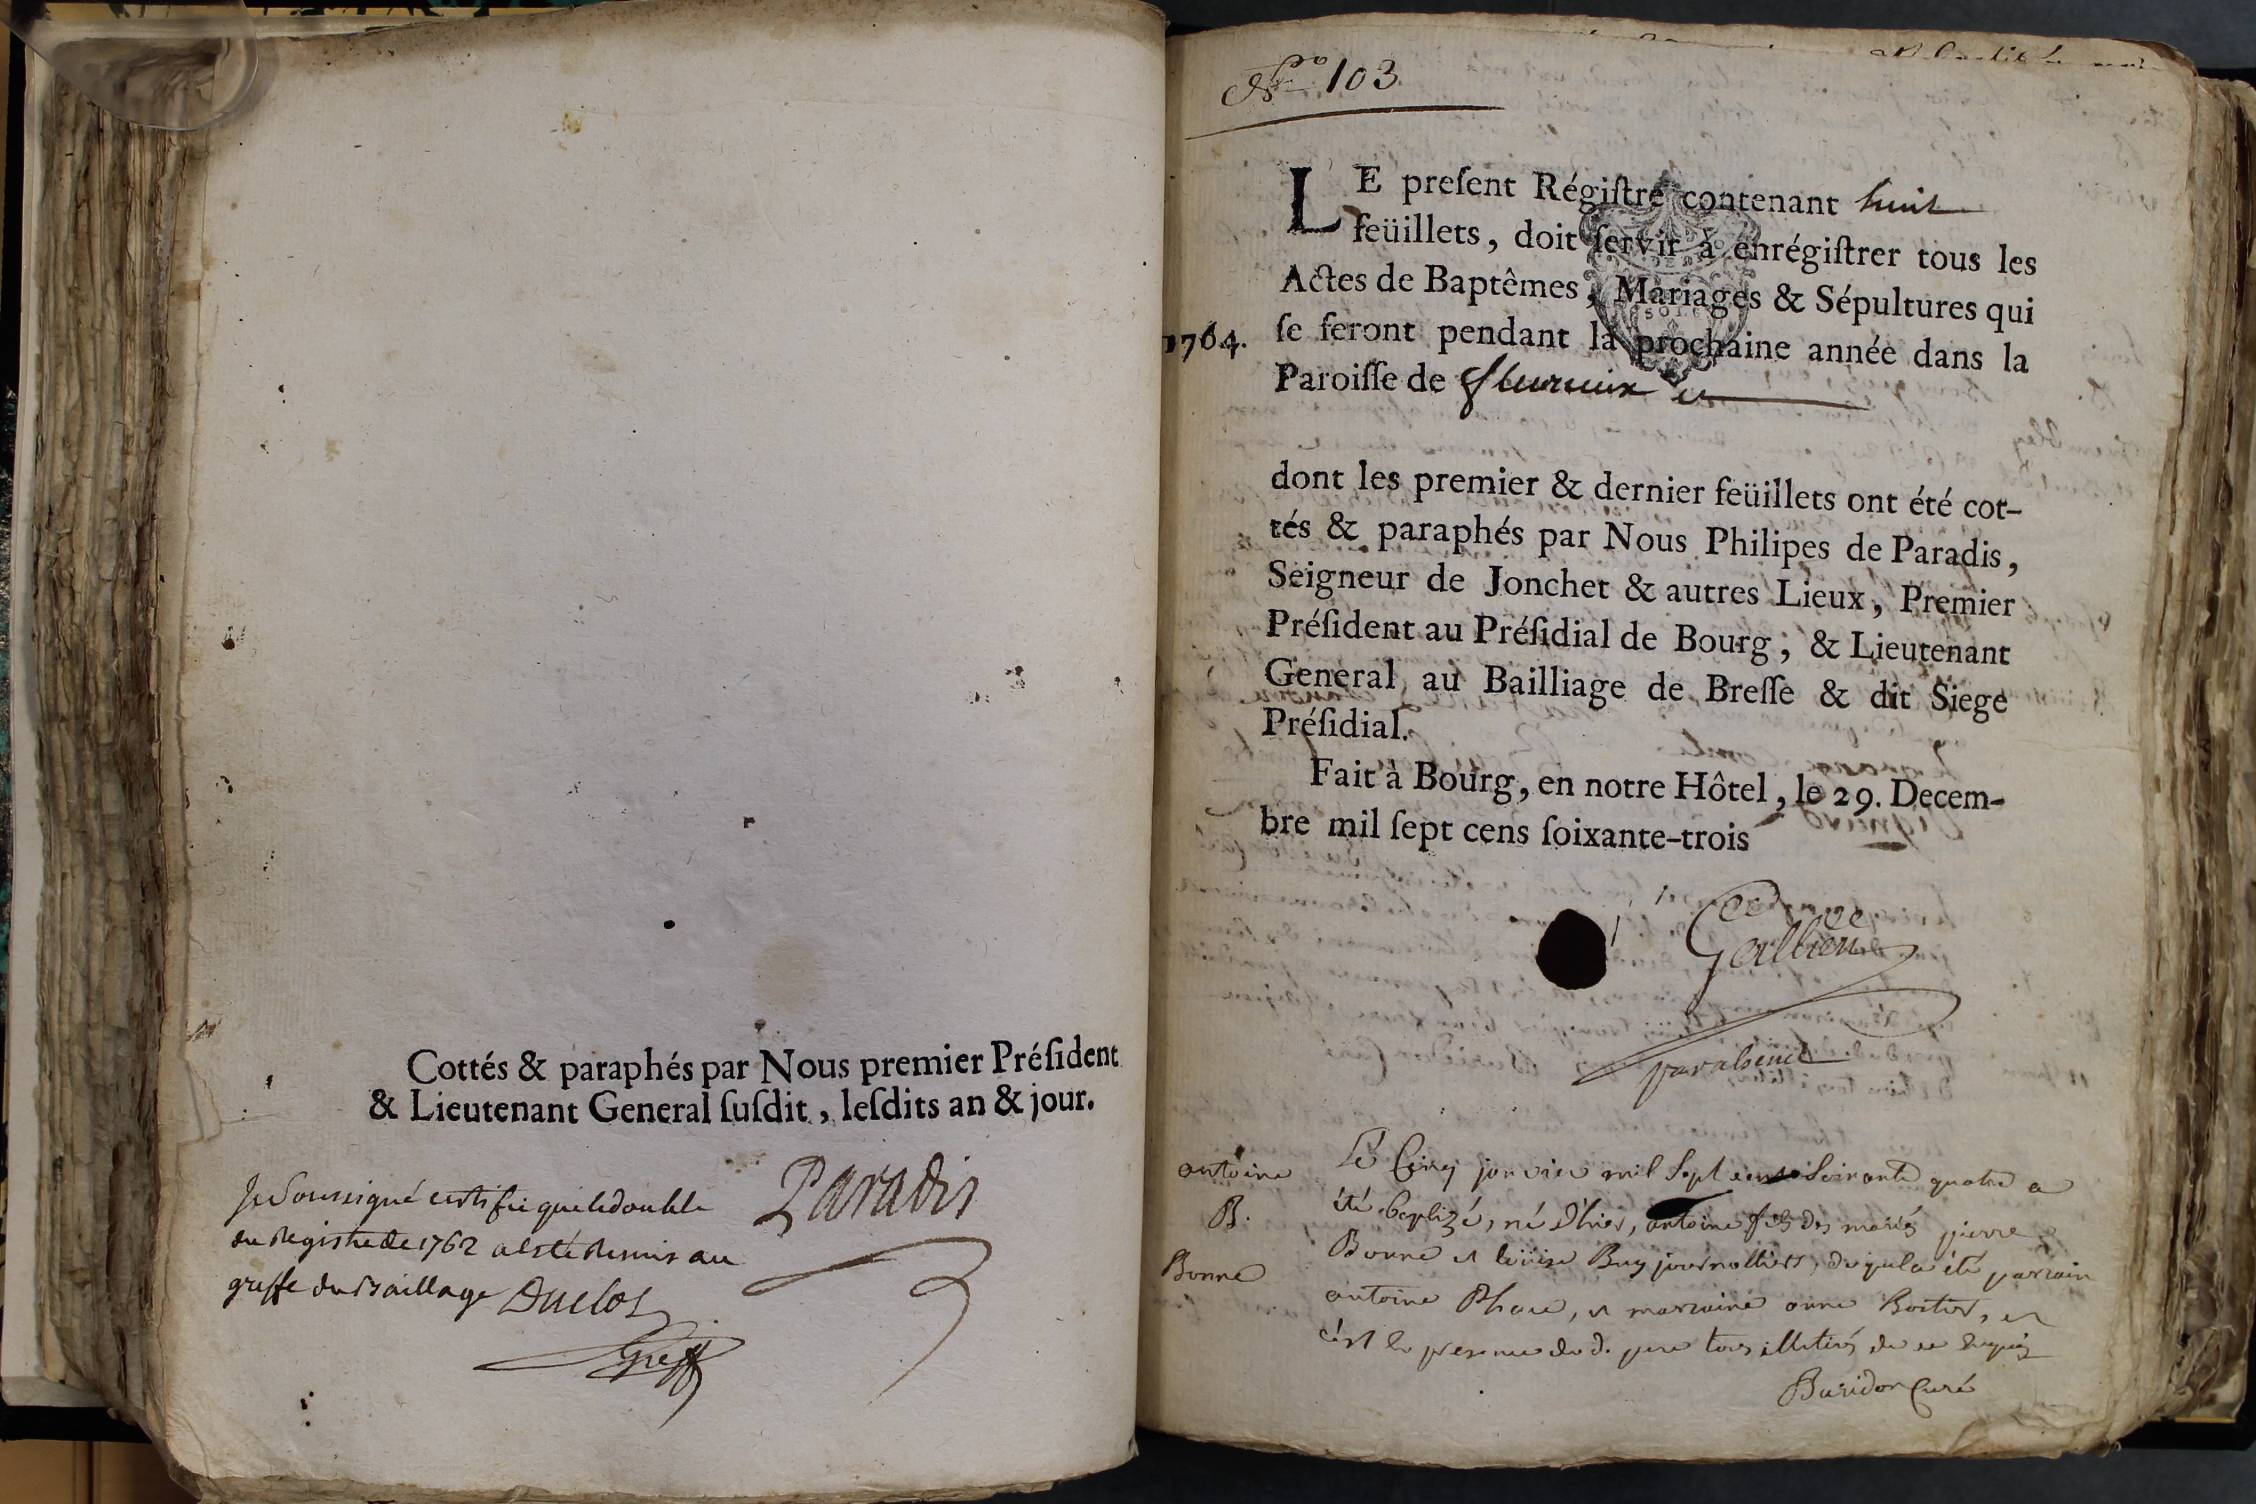 Cottés & paraphés par Nous premier Préſident
& Lieutenant General ſuſdit, leſdits an & jour.
Paradis
Je Soussigné certifie que le double
du Registre de 1762 a esté Remis au
greffe du Baillage Duclos
Greff
No 103
LE preſent Régiſtre contenant huit
feüillets, doit ſervir à enrégiſtrer tous les
Actes de Baptêmes, Mariages & Sépultures qui
1764. ſe feront pendant la prochaine année dans la
Paroiſſe de fleurieux
dont les premier & dernier feüillets ont été cot-
tés & paraphés par Nous Philipes de Paradis,
Seigneur de Jonchet & autres Lieux, Premier
Préſident au Préſidial de Bourg, & Lieutenant
General au Bailliage de Breſſe & dit Siege
Préſidial.
Fait à Bourg, en notre Hôtel, le 29. Decem-
bre mil ſept cens ſoixante-trois
Gallien
antoine
B.
Bonne
Le Cinq janvier mil Sept cent Soixante quatre a
été baptizé, né d'hier, antoine fils des mariés pierre
Bonne et loüise Buy journalliers, duquel a été parrain
antoine Phare, et marraine anne Bortier, et
c'est en presence dud. pere tous illiterés de ce enquis
Buridon Curé